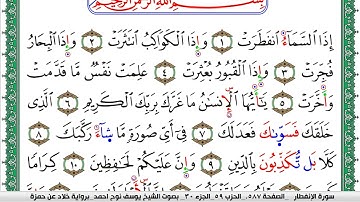 بِسْمِ ٱللَّهِ ٱلرَّحْمَٰنِ ٱلرَّحِيمِ
إِذَا ٱلسَّمَآءُ ٱنفَطَرَتْ ١ وَإِذَا ٱلْكَوَاكِبُ ٱنتَثَرَتْ ٢ وَإِذَا ٱلْبِحَارُ
فُجِّرَتْ ٣ وَإِذَا ٱلْقُبُورُ بُعْثِرَتْ ٤ عَلِمَتْ نَفْسٌ مَّا قَدَّمَتْ
وَأَخَّرَتْ ٥ يَٰٓأَيُّهَا ٱلْإِنسَٰنُ مَا غَرَّكَ بِرَبِّكَ ٱلْكَرِيمِ ٦ ٱلَّذِى
خَلَقَكَ فَسَوَّىٰكَ فَعَدَلَكَ ٧ فِىٓ أَىِّ صُورَةٍ مَّا شَآءَ رَكَّبَكَ ٨
كَلَّا بَل تُّكَذِّبُونَ بِٱلدِّينِ ٩ وَإِنَّ عَلَيْكُمْ لَحَٰفِظِينَ ١٠ كِرَامًا
سورة الإنفطار _ الصفحة ٥٨٧_ الحزب ٥٩_ الجزء ٣٠_ بصوت الشيخ يوسف نوح احمد برواية خلاد عن حمزة